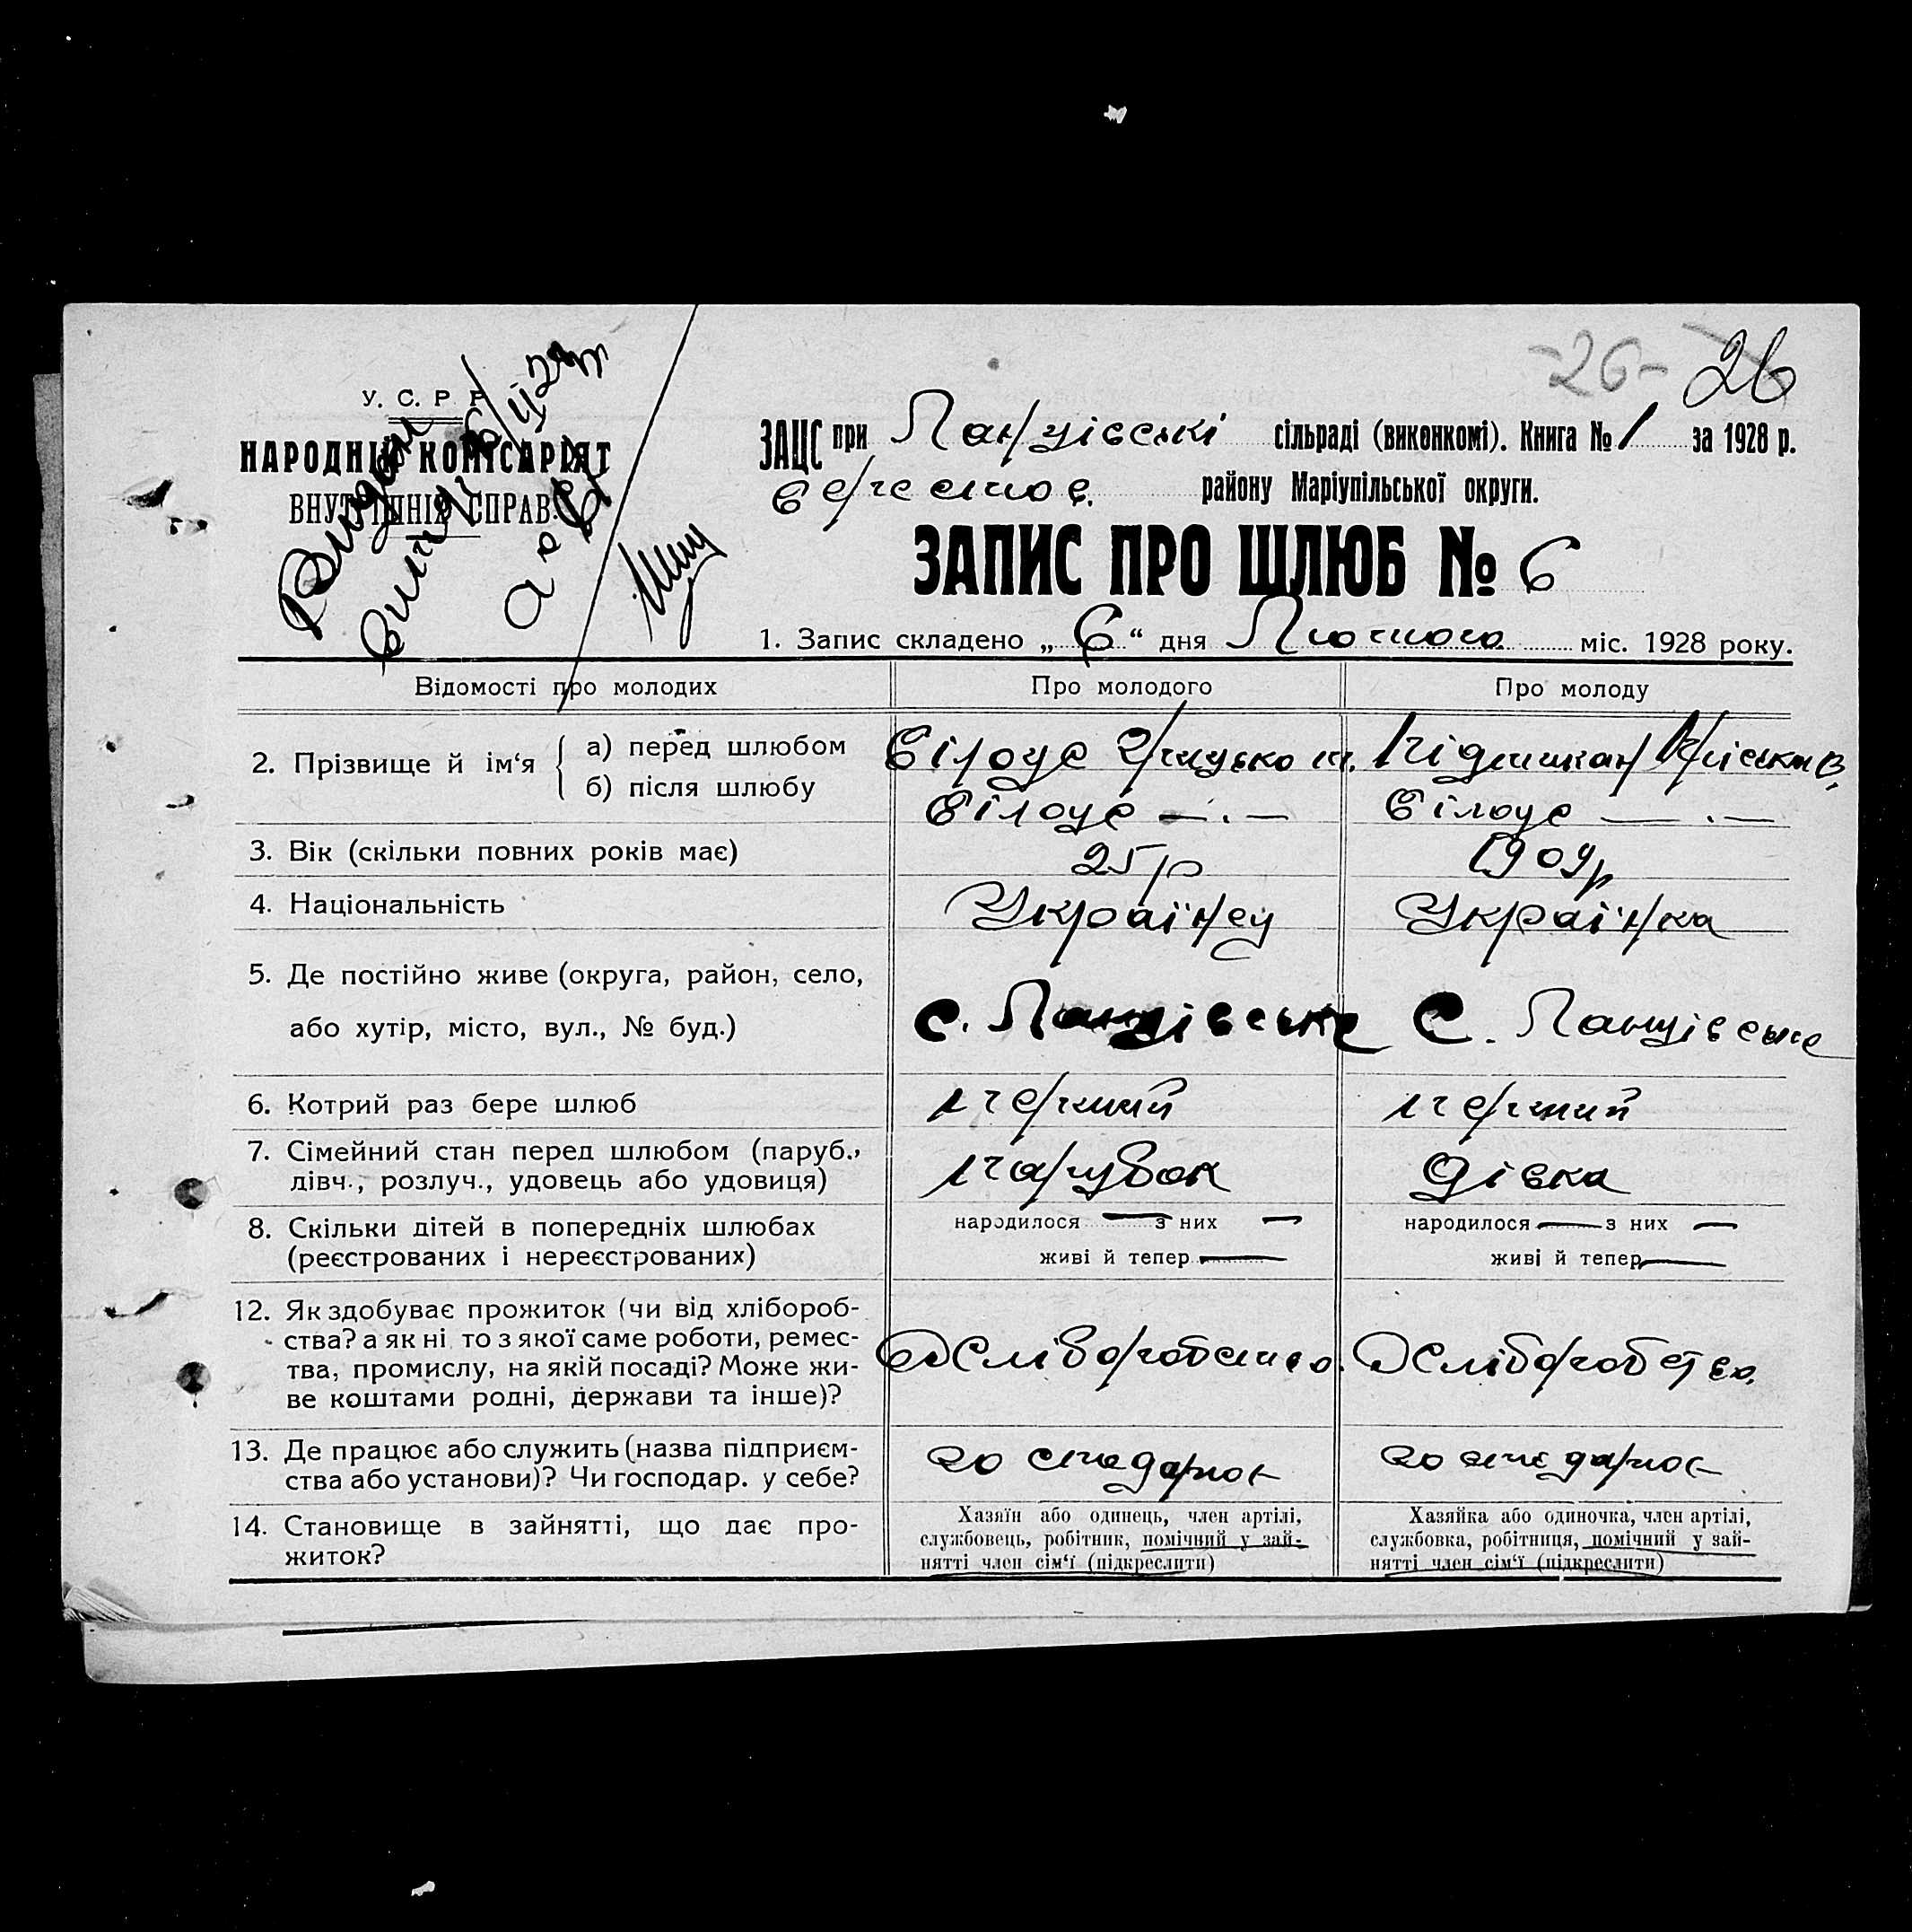 -26- 26
У. С. Р. Р.
НАРОДНІЙ КОМІСАРІЯТ
ВНУТРІШНІХ СПРАВ
Видан
6/II 28 р
ЗАЦС при сільраді (виконкомі). Книга № 1 за 1928 р.
району Маріупільської округи.
ЗАПИС ПРО ШЛЮБ № 6
1. Запис складено „ 6 “ дня Лютого міс. 1928 року.
Відомості про молодих Про молодого Про молоду
2. Прізвище й ім‘я { а) перед шлюбом Білоус
б) після шлюбу Білоус —.— Білоус —.—
3. Вік (скільки повних років має) 25 р 1909 р
4. Національність Українец Українка
5. Де постійно живе (округа, район, село,
або хутір, місто, вул., № буд.) с. С.
6. Котрий раз бере шлюб перший перший
7. Сімейний стан перед шлюбом (паруб.,
дівч., розлуч., удовець або удовиця) парубок дівка
8. Скільки дітей в попередніх шлюбах народилося — з них — народилося — з них —
(реєстрованих і нереєстрованих) живі й тепер — живі й тепер —
12. Як здобуває прожиток (чи від хлібороб-
ства? а як ні то з якої саме роботи, ремес-
тва, промислу, на якій посаді? Може жи- Хліборобство. Хліборобство.
ве коштами родні, держави та інше)?
13. Де працює або служить (назва підприєм-
ства або установи)? Чи господар. у себе?
14. Становище в зайнятті, що дає про-
житок?
Хазяїн або одинець, член артілі,
службовець, робітник, помічний у зай-
нятті член сім‘ї (підкреслити)
Хазяйка або одиночка, член артілі,
службовка, робітниця, помічний у зай-
нятті член сім‘ї (підкреслити)